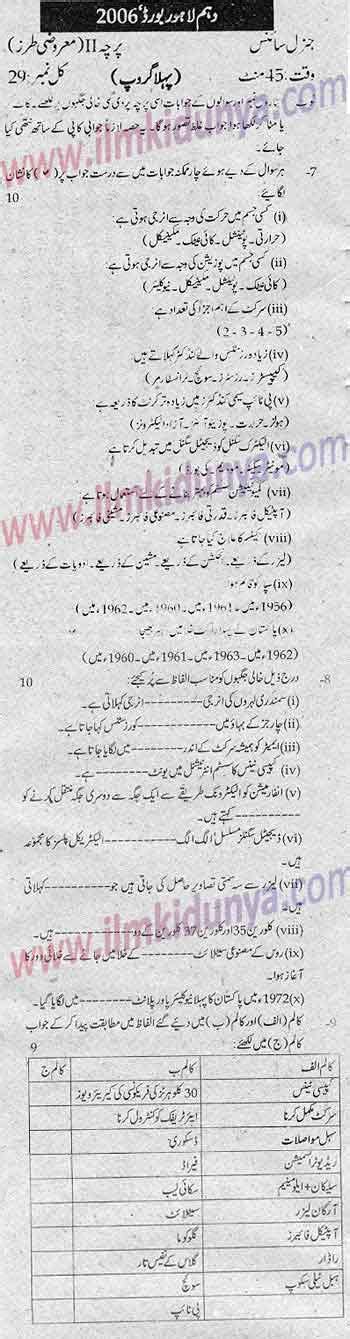 دہم لاہور بورڈ، 2006
جنرل سائنس پرچہ II (معروضی طرز)
وقت: 45 منٹ (پہلا گروپ) کل نمبر: 29
نوٹ سوالوں کے جوابات اسی پرچہ پر دی گئی خالی جگہوں
یا مٹا لکھا ہوا جواب غلط تصور ہوگا۔ یہ حصہ جوابی کاپی کے ساتھ نتھی کیا
جائے۔
7- ہر سوال کے دیے ہوئے چار ممکنہ جوابات میں سے درست جواب پر (✓) کا نشان
لگائیے: 10
(i) کسی جسم میں حرکت کی وجہ سے انرجی ہوتی ہے:
(حرارتی۔ پوٹینشل۔ کائی نیٹک۔ مکینیکل)
(ii) کسی جسم میں پوزیشن کی وجہ سے انرجی ہوتی ہے:
(کائی نیٹک۔ پوٹینشل۔ مکینیکل۔ نیوکلیئر)
(iii) سرکٹ کے اہم اجزا کی تعداد ہے:
(2 - 3 - 4 - 5)
(iv) زیادہ رزسٹنس والے کنڈکٹر کہلاتے ہیں:
(کپیسٹرز۔ رزسٹرز۔ سوئچ۔ ٹرانسفارمر)
(v) پی ٹائپ سیمی کنڈکٹرز میں زیادہ تر کرنٹ کا ذریعہ ہے
(ہولز۔ آزاد الیکٹرونز)
(vi) الیکٹرک سگنل کو ڈیجیٹل سگنل میں تبدیل کرتا ہے
(مونیٹر۔ موڈیم۔ کی بورڈ)
(vii) کمیونیکیشن استعمال ہوتا ہے
(آپٹیکل فائبرز۔ قدرتی فائبرز۔ مصنوعی فائبرز۔ فائبرز)
(viii) کینسر کا علاج کیا جاتا ہے
(لیزر کے ذریعے۔ انجکشن کے ذریعے۔ مشین کے ذریعے۔ ادویات کے ذریعے)
(ix)
(1956ء میں۔ 1961ء میں۔ 1960ء میں۔ 1962ء میں)
(x) پاکستان نے پہلا راکٹ خلا میں بھیجا
(1962ء میں۔ 1963ء میں۔ 1961ء میں۔ 1960ء میں)
8- درج ذیل خالی جگہوں کو مناسب الفاظ سے پُر کیجیے: 10
(i) سمندری لہروں کی انرجی ---------- انرجی کہلاتی ہے۔
(ii) چارجز کے بہاؤ میں ---------- کو رزسٹنس کہا جاتا ہے۔
(iii) ایمیٹر کو ہمیشہ سرکٹ کے اندر ---------- میں لگایا جاتا ہے۔
(iv) کپیسی ٹینس کا سسٹم انٹرنیشنل میں یونٹ ---------- ہے۔
(v) انفارمیشن کو الیکٹرونک طریقے سے ایک جگہ سے دوسری جگہ منتقل کرنے کو
---------- کہتے ہیں۔
(vi) ڈیجیٹل سگنلز مسلسل الگ الگ ---------- الیکٹریکل پلسز کا مجموعہ
ہیں۔
(vii) لیزر سے سہ سمتی تصاویر حاصل کی جاتی ہیں جو ---------- کہلاتی
ہیں۔
(viii) کلورین 35 اور کلورین 37 کلورین کے دو ---------- ہیں۔
(ix) روس کے مصنوعی سیٹلائٹ ---------- کے خلا میں جانے سے خلائی دور کا
آغاز ہوا۔
(x) 1972ء میں پاکستان کا پہلا نیوکلیئر پاور پلانٹ ---------- میں لگایا گیا۔
9- کالم (الف) اور کالم (ب) میں دیے گئے الفاظ میں مطابقت پیدا کر کے جواب
کالم (ج) میں لکھیے: 9
کالم الف کالم ب کالم ج
کپیسی ٹینس 30 کلو ہرٹز کی فریکوئنسی کی کیریئر ویوز
سرکٹ مکمل کرنا ایئر ٹریفک کو کنٹرول کرنا
سیل مواصلات ڈسکوری
ریڈیو ٹرانسمیشن فیراڈ
سیلیکان + ایلومینیم سکائی لیب
آرگان لیزر سیٹلائٹ
آپٹیکل فائبرز گلوکوما
راڈار گلاس کے نفیس تار
ہبل ٹیلی سکوپ سوئچ
پی ٹائپ
www.ilmkidunya.com
www.ilmkidunya.com
www.ilmkidunya.com